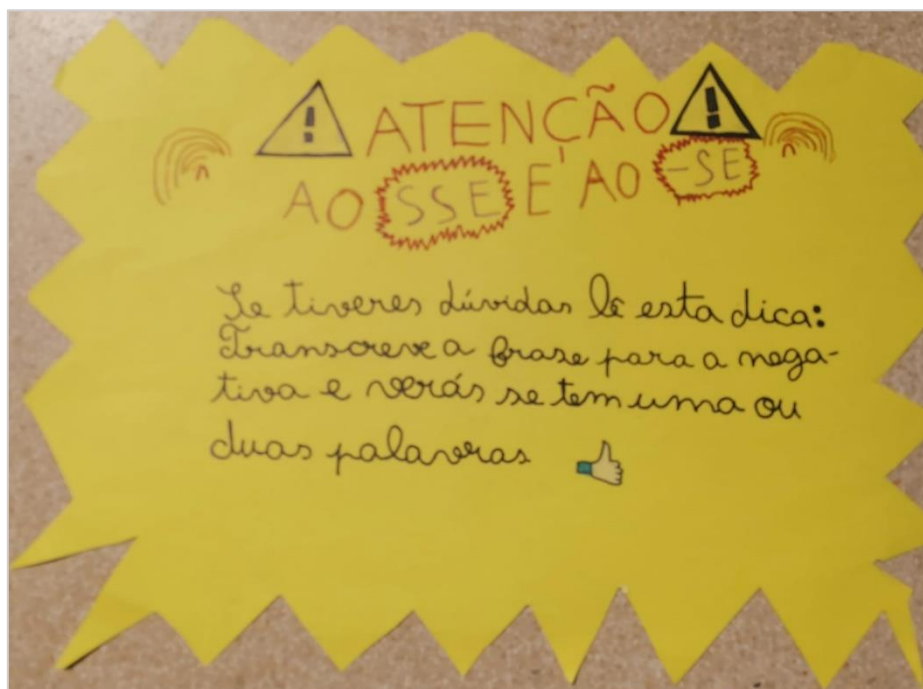 ATENÇÃO
AO SSE E AO -SE
Se tiveres dúvidas lê esta dica:
Transcreve a frase para a nega-
tiva e verás se tem uma ou
duas palavras